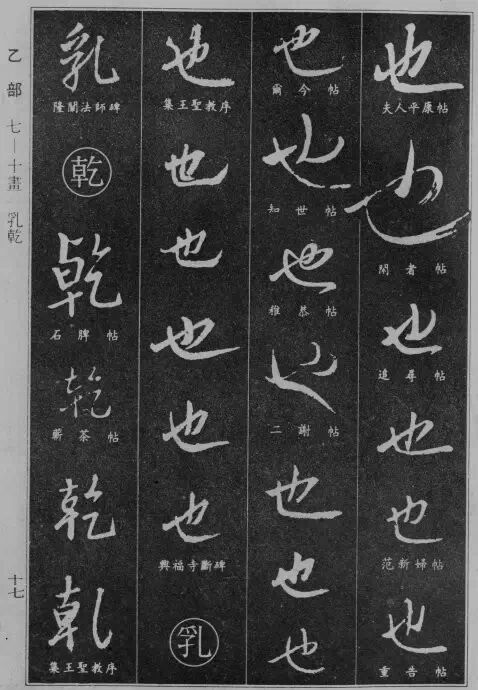 也
夫人平康帖
也
者帖
也
追尋帖
也
也
范新婦帖
也
重告帖
也
爾今帖
也
知世帖
也
雅恭帖
也
二謝帖
也
也
也
也
集王聖教序
也
也
也
也
也
興福寺斷碑
乳
乳
隆闡法師碑
乾
乾
石脾帖
乾
蘄茶帖
乾
乾
集王聖教序
乙部 七—十畫 乳乾
十七